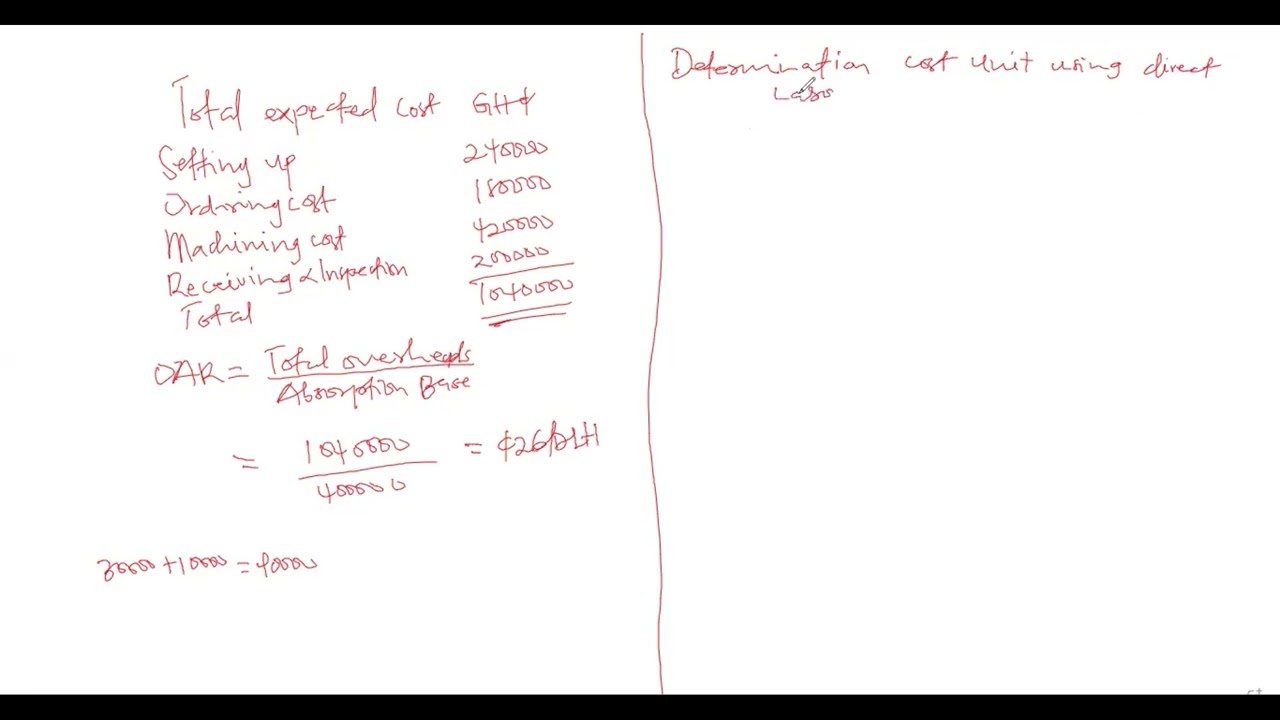 Total expected cost GH¢
Setting up 240000
Ordering cost 180000
Machining cost 420000
Receiving & Inspection 200000
Total 1040000
OAR = Total overheads
Absorption Base
= 1040000 = ¢26/DLH
40000
30000 + 10000 = 40000
Determination cost unit using direct